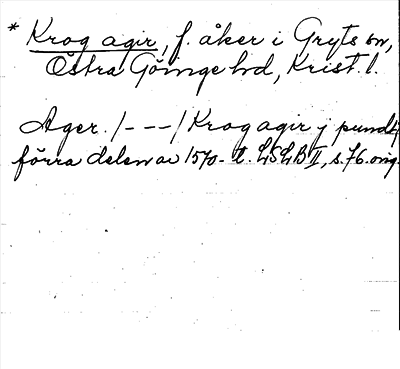 * Krog agir, f. åker i Gryts sn,
Östra Göinge hd, Krist. l.
Ager. /---/ Krog agir j pund
förra delen av 1570-t. LSLB II, s. 76. orig.